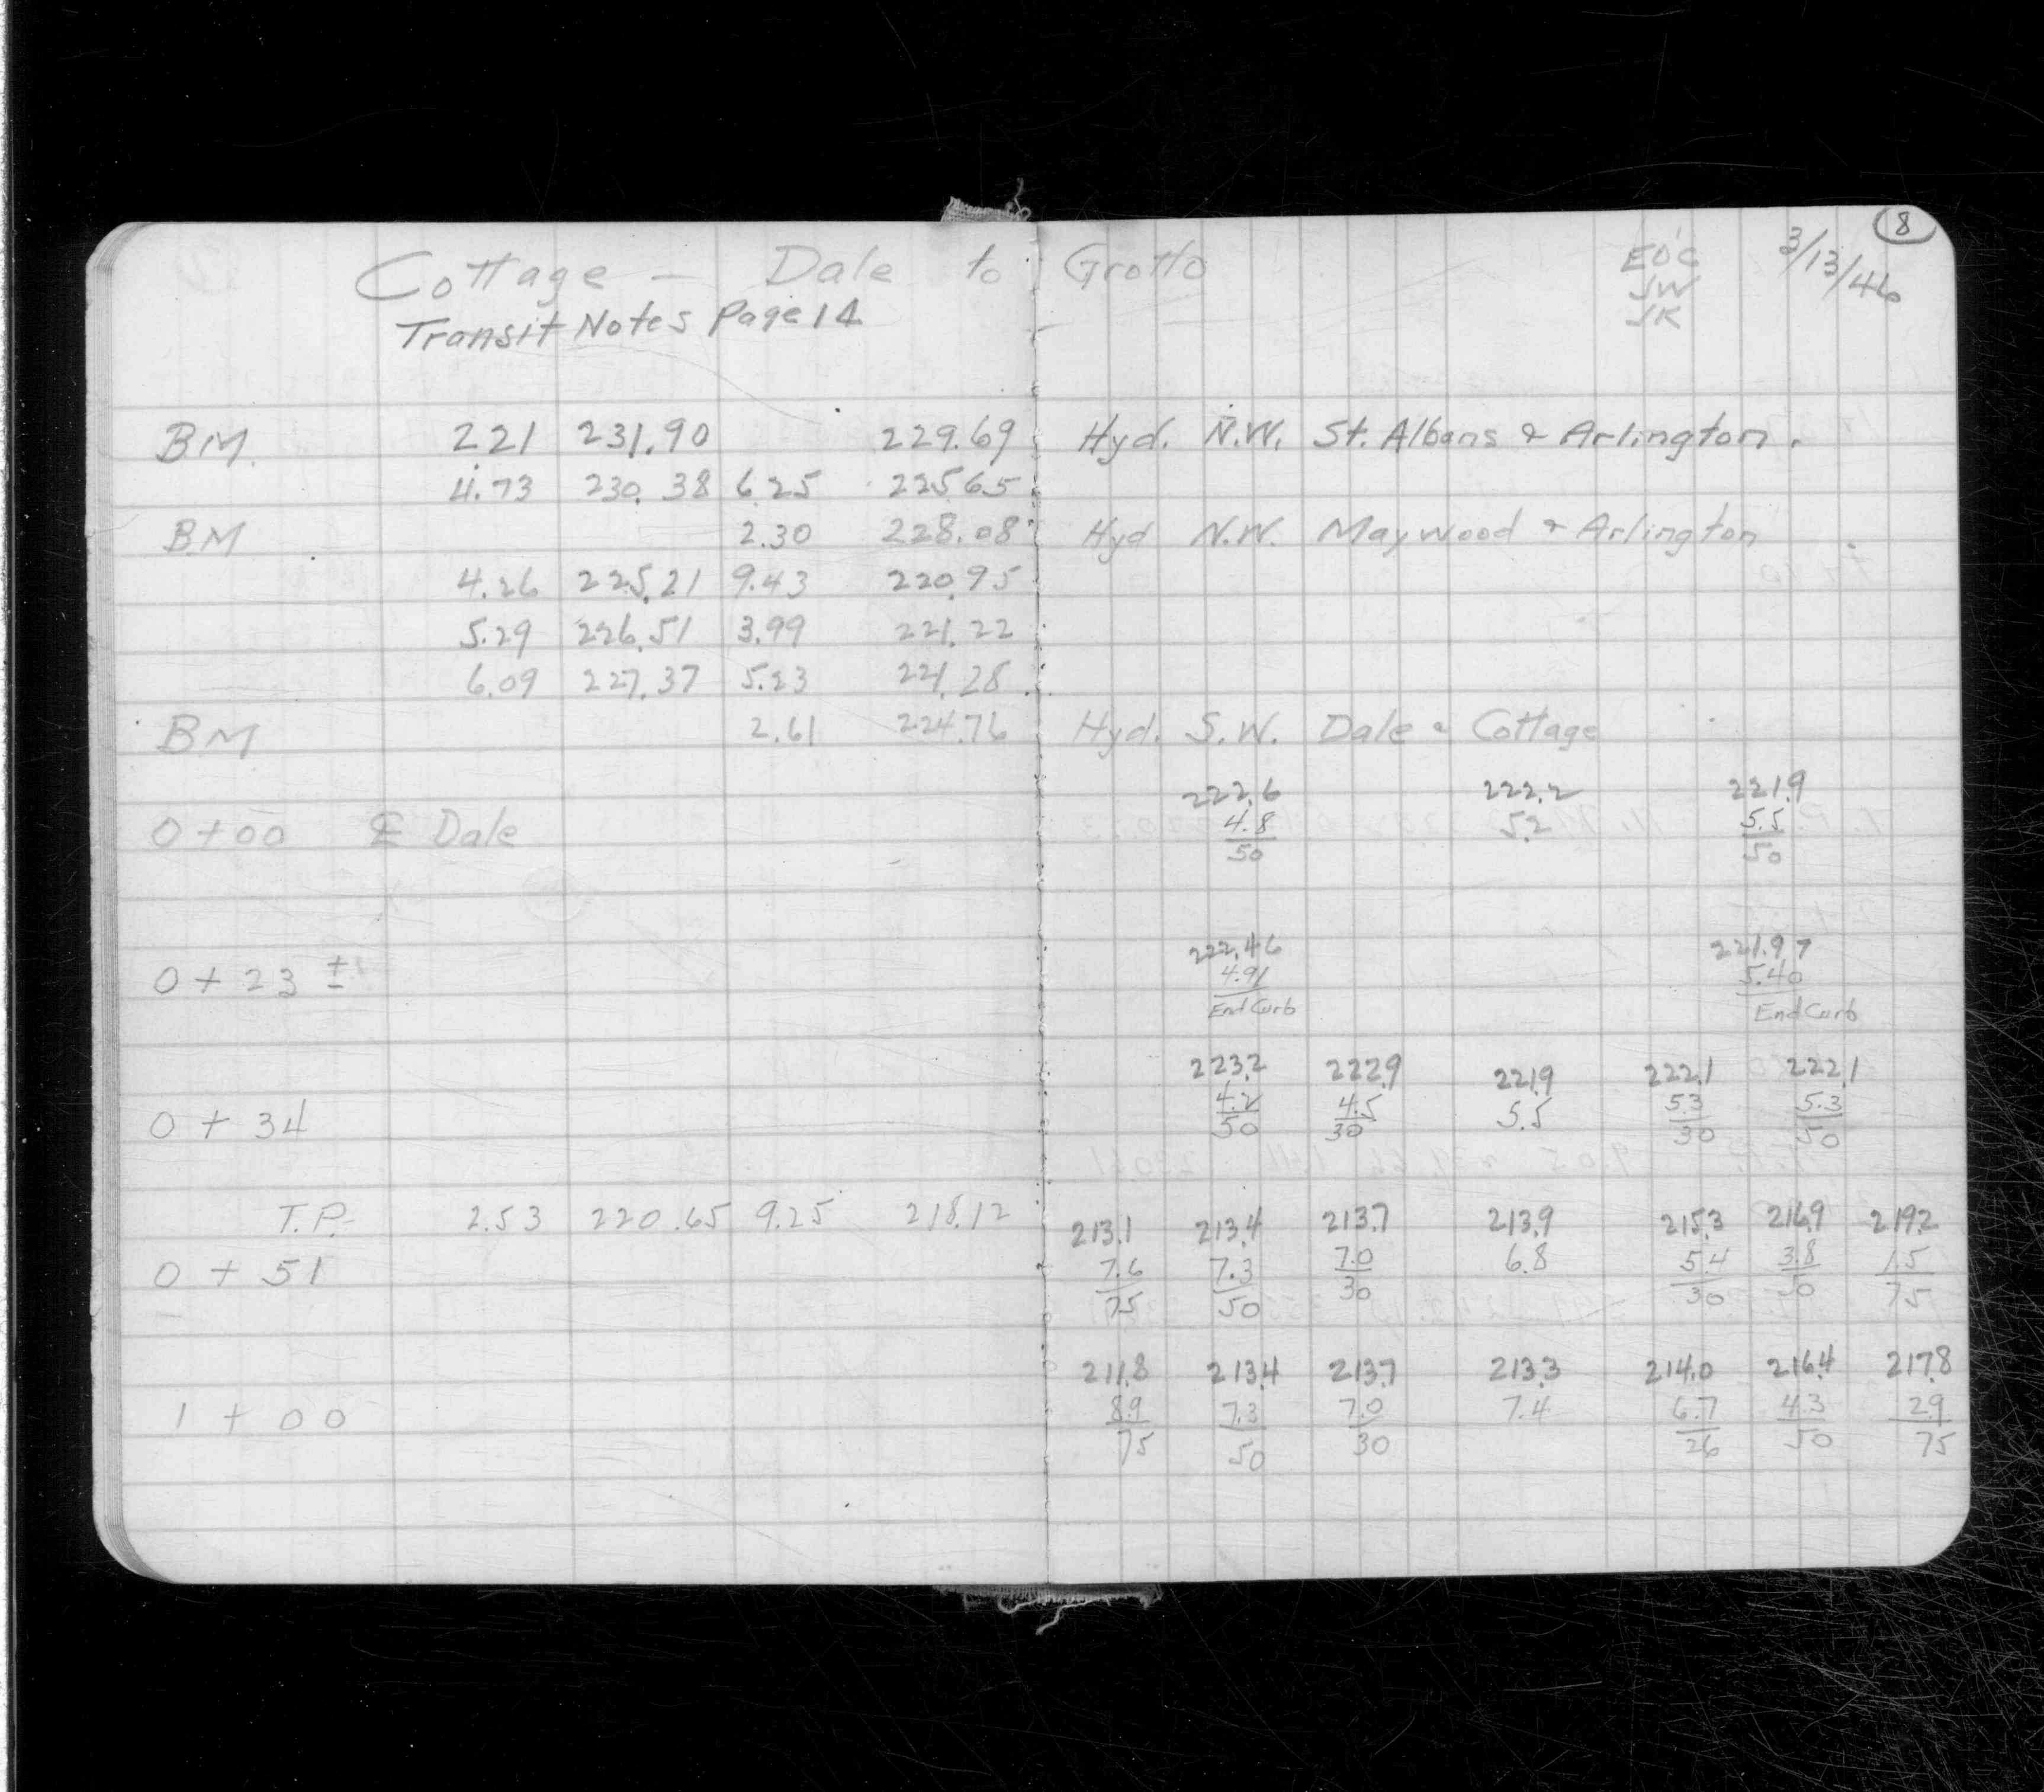 8
Cottage — Dale to Grotto EO'C 3/13/46
Transit Notes Page 14 JW
JK
BM. 2.21 231.90 229.69 Hyd. N.W. St. Albans & Arlington.
4.73 230.38 6.25 225.65
BM 2.30 228.08 Hyd N.W. Maywood & Arlington
4.26 225.21 9.43 220.95
5.29 226.51 3.99 221.22
6.09 227.37 5.23 221.28
BM 2.61 224.76 Hyd. S.W. Dale & Cottage
222.6 222.2 221.9
0+00 ℄ Dale 4.8 5.2 5.5
50 50
222.46 221.97
0+23 ± 4.91 5.40
End Curb End Curb
223.2 222.9 221.9 222.1 222.1
0+34 4.2 4.5 5.5 5.3 5.3
50 30 30 50
T.P. 2.53 220.65 9.25 218.12 213.1 213.4 213.7 213.9 215.3 216.9 219.2
0+51 7.6 7.3 7.0 6.8 5.4 3.8 1.5
75 50 30 30 50 75
211.8 213.4 213.7 213.3 214.0 216.4 217.8
1+00 8.9 7.3 7.0 7.4 6.7 4.3 2.9
75 50 30 26 50 75